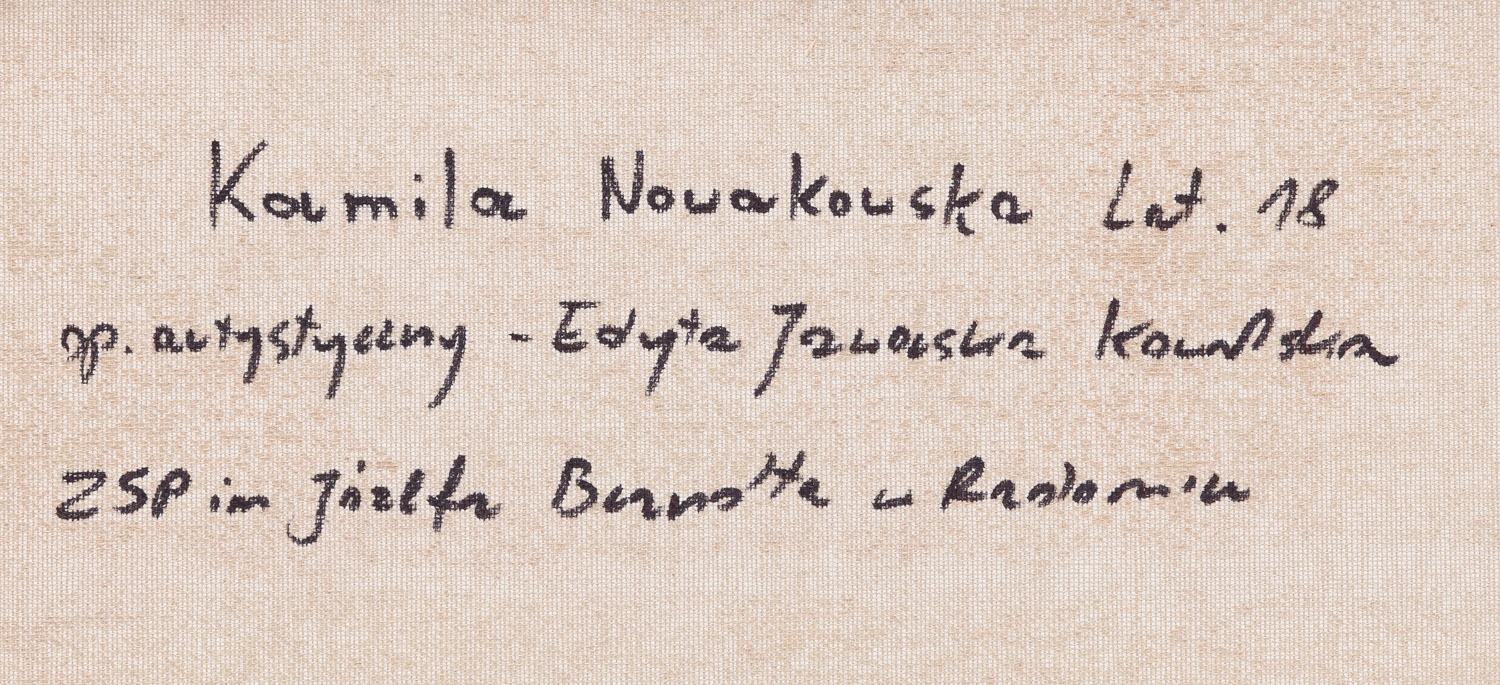 Kamila Nowakowska Lat. 18
op. artystyczny - Edyta Jaworska Kowalska
ZSP im Józefa Brandta w Radomiu